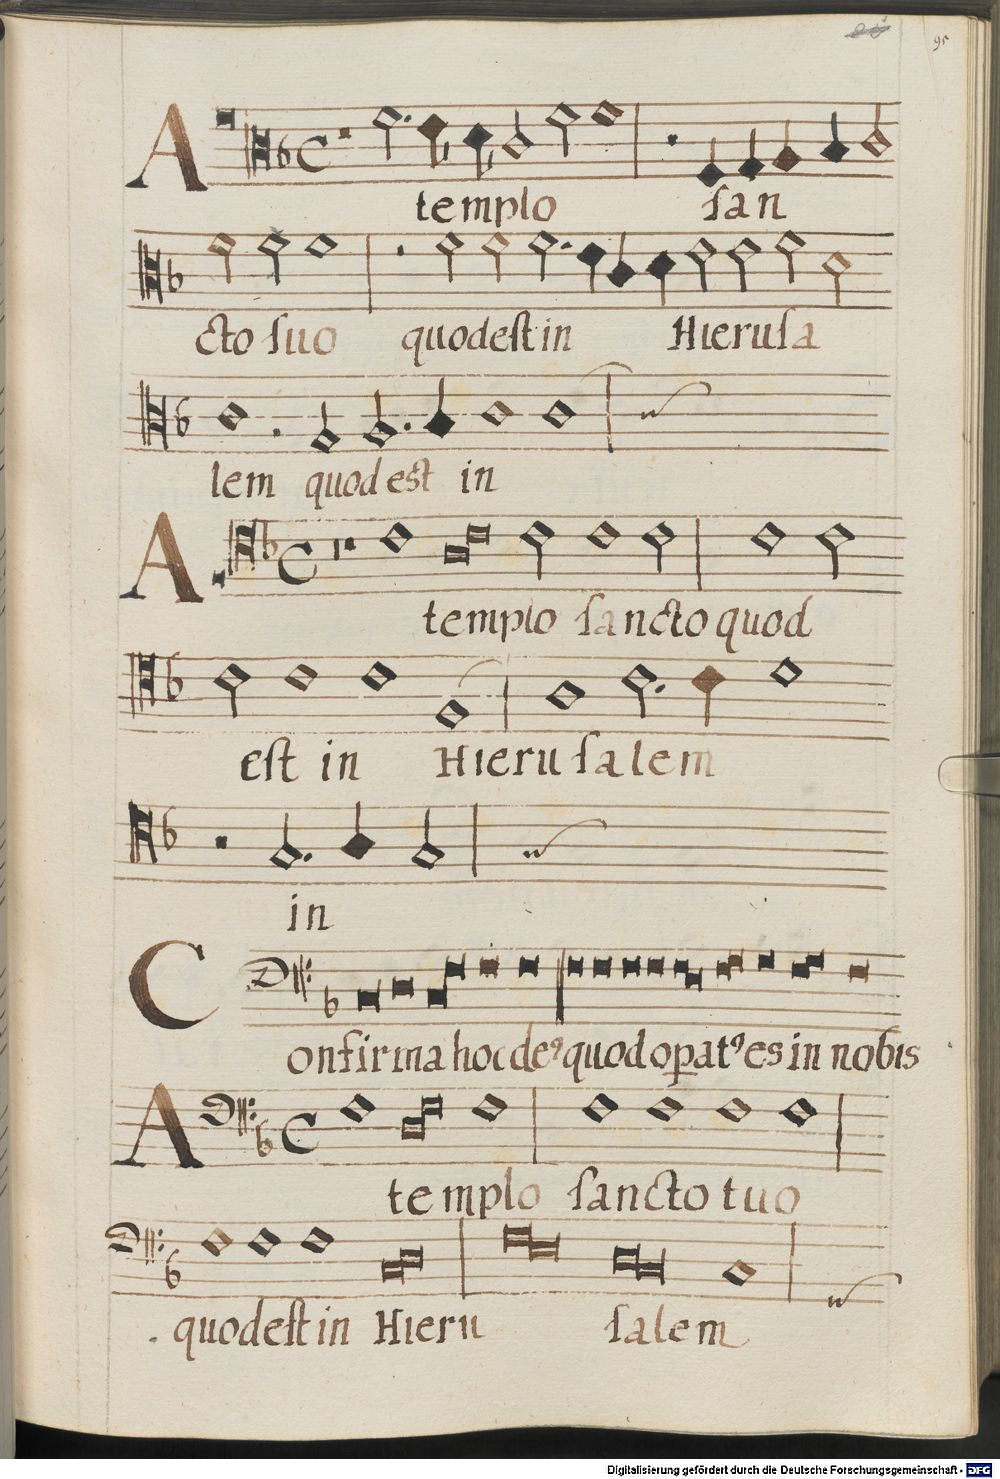 95
A templo san
cto suo quod est in Hierusa
lem quod est in
A templo sancto quod
est in Hierusalem
in
Confirma hoc de⁹ quod opat⁹ es in nobis
A templo sancto tuo
quod est in Hieru salem
Digitalisierung gefördert durch die Deutsche Forschungsgemeinschaft - DFG